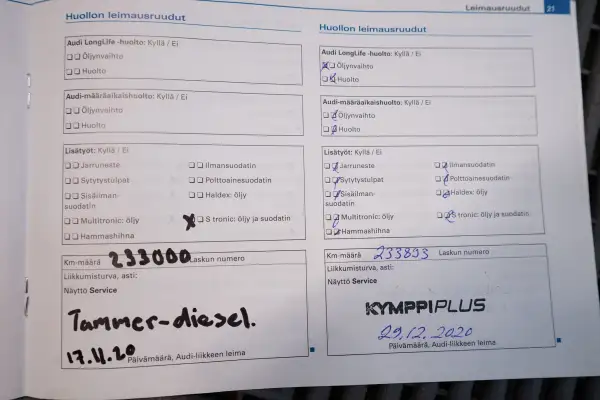 Leimausruudut 21
Huollon leimausruudut
Audi LongLife -huolto: Kyllä / Ei
Öljynvaihto
Huolto
Audi-määräaikaishuolto: Kyllä / Ei
Öljynvaihto
Huolto
Lisätyöt: Kyllä / Ei
Jarruneste
Ilmansuodatin
Sytytystulpat
Polttoainesuodatin
Sisäilman-
suodatin
Haldex: öljy
Multitronic: öljy
X S tronic: öljy ja suodatin
Hammashihna
Km-määrä 233000 Laskun numero
Liikkumisturva, asti:
Näyttö Service
Tammer-diesel.
17.11.20 Päivämäärä, Audi-liikkeen leima
Huollon leimausruudut
Audi LongLife -huolto: Kyllä / Ei
Öljynvaihto
Huolto
Audi-määräaikaishuolto: Kyllä / Ei
Öljynvaihto
Huolto
Lisätyöt: Kyllä / Ei
Jarruneste
Ilmansuodatin
Sytytystulpat
Polttoainesuodatin
Sisäilman-
suodatin
Haldex: öljy
Multitronic: öljy
S tronic: öljy ja suodatin
Hammashihna
Km-määrä 233893 Laskun numero
Liikkumisturva, asti:
Näyttö Service
KYMPPIPLUS
29.12.2020
Päivämäärä, Audi-liikkeen leima